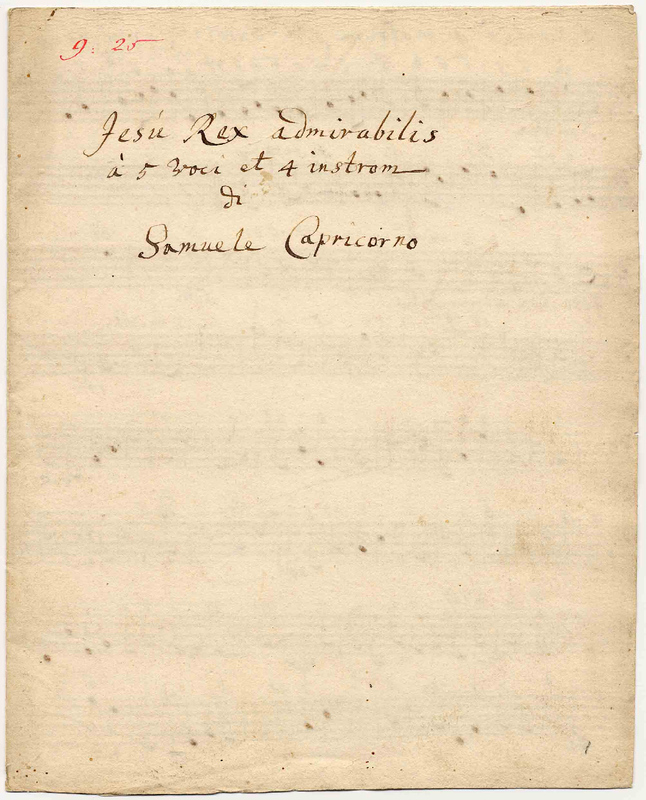 9: 25
Jesù Rex admirabilis
à 5 voci et 4 instrom
di
Samuele Capricorno
1